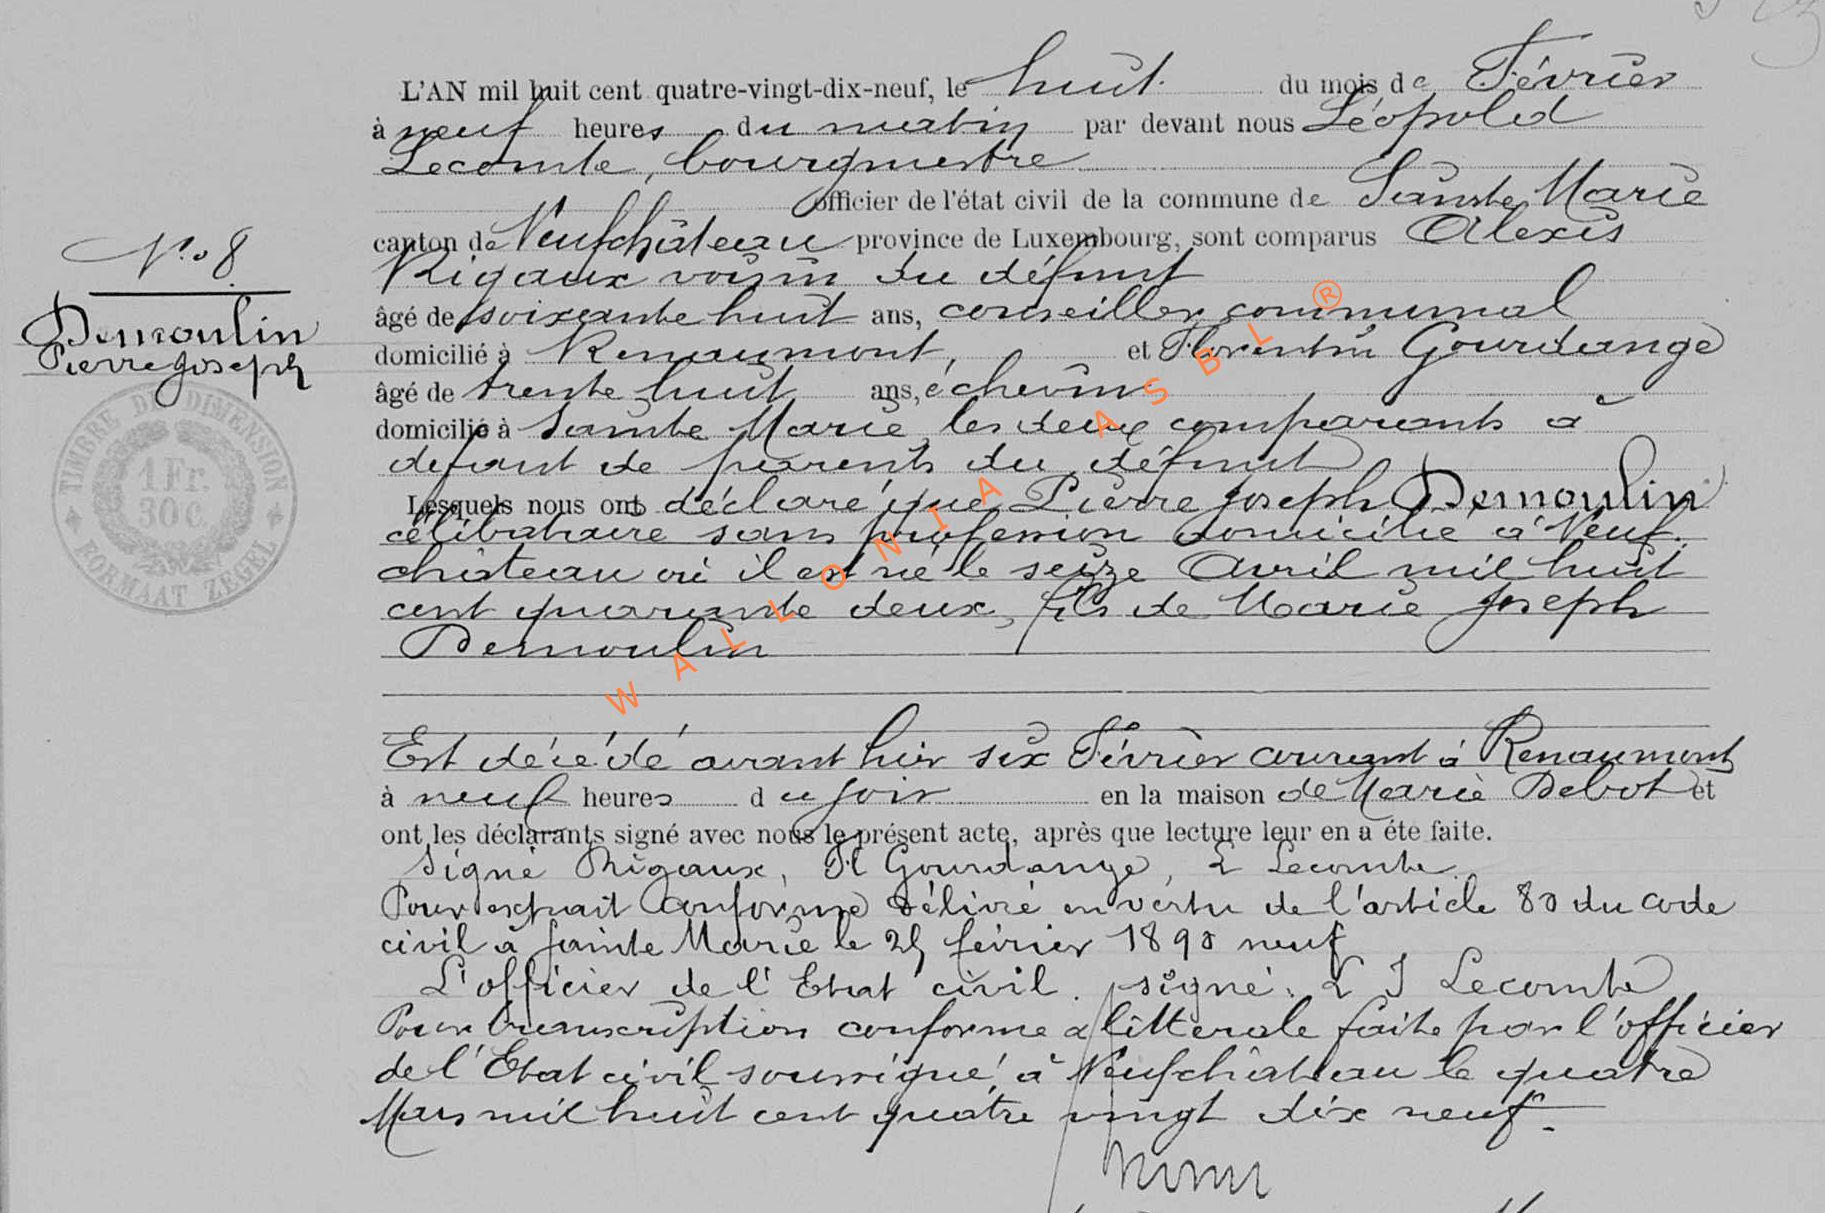 L'AN mil huit cent quatre-vingt-dix-neuf, le huit du mois de Février
à neuf heures du matin par devant nous Léopold
Lecomte, bourgmestre
officier de l'état civil de la commune de Sainte Marie
canton de Neufchâteau province de Luxembourg, sont comparus Alexis
Rigaux voisin du défunt
âgé de soixante huit ans, conseiller communal
domicilié à Renaumont, et Florentin Gourdange
âgé de trente huit ans, échevin
domicilié à Sainte Marie les deux comparants à
défaut de parents du défunt
Lesquels nous ont déclaré que Pierre Joseph Demoulin
célibataire sans profession domicilié à Neuf-
château où il est né le seize Avril mil huit
cent quarante deux, fils de Marie Joseph
Demoulin
Est décédé avant hier six Février courant à Renaumont
à neuf heures du soir en la maison de Marie Debot et
ont les déclarants signé avec nous le présent acte, après que lecture leur en a éte faite.
signé Rigaux, Fl Gourdange, L Lecomte.
Pour extrait conforme délivré en vertu de l'article 80 du code
civil à Sainte Marie le 25 février 1890 neuf
L'officier de l'Etat civil. signé. L J Lecomte
Pour transcription conforme & littérale faite par l'officier
de l'Etat civil soussigné, à Neufchâteau le quatre
Mars mil huit cent quatre vingt dix neuf.
N.o 8
Demoulin
Pierre Joseph
TIMBRE DE DIMENSION
1 Fr.
30 C.
FORMAAT ZEGEL
WALLONIA ASBL ®